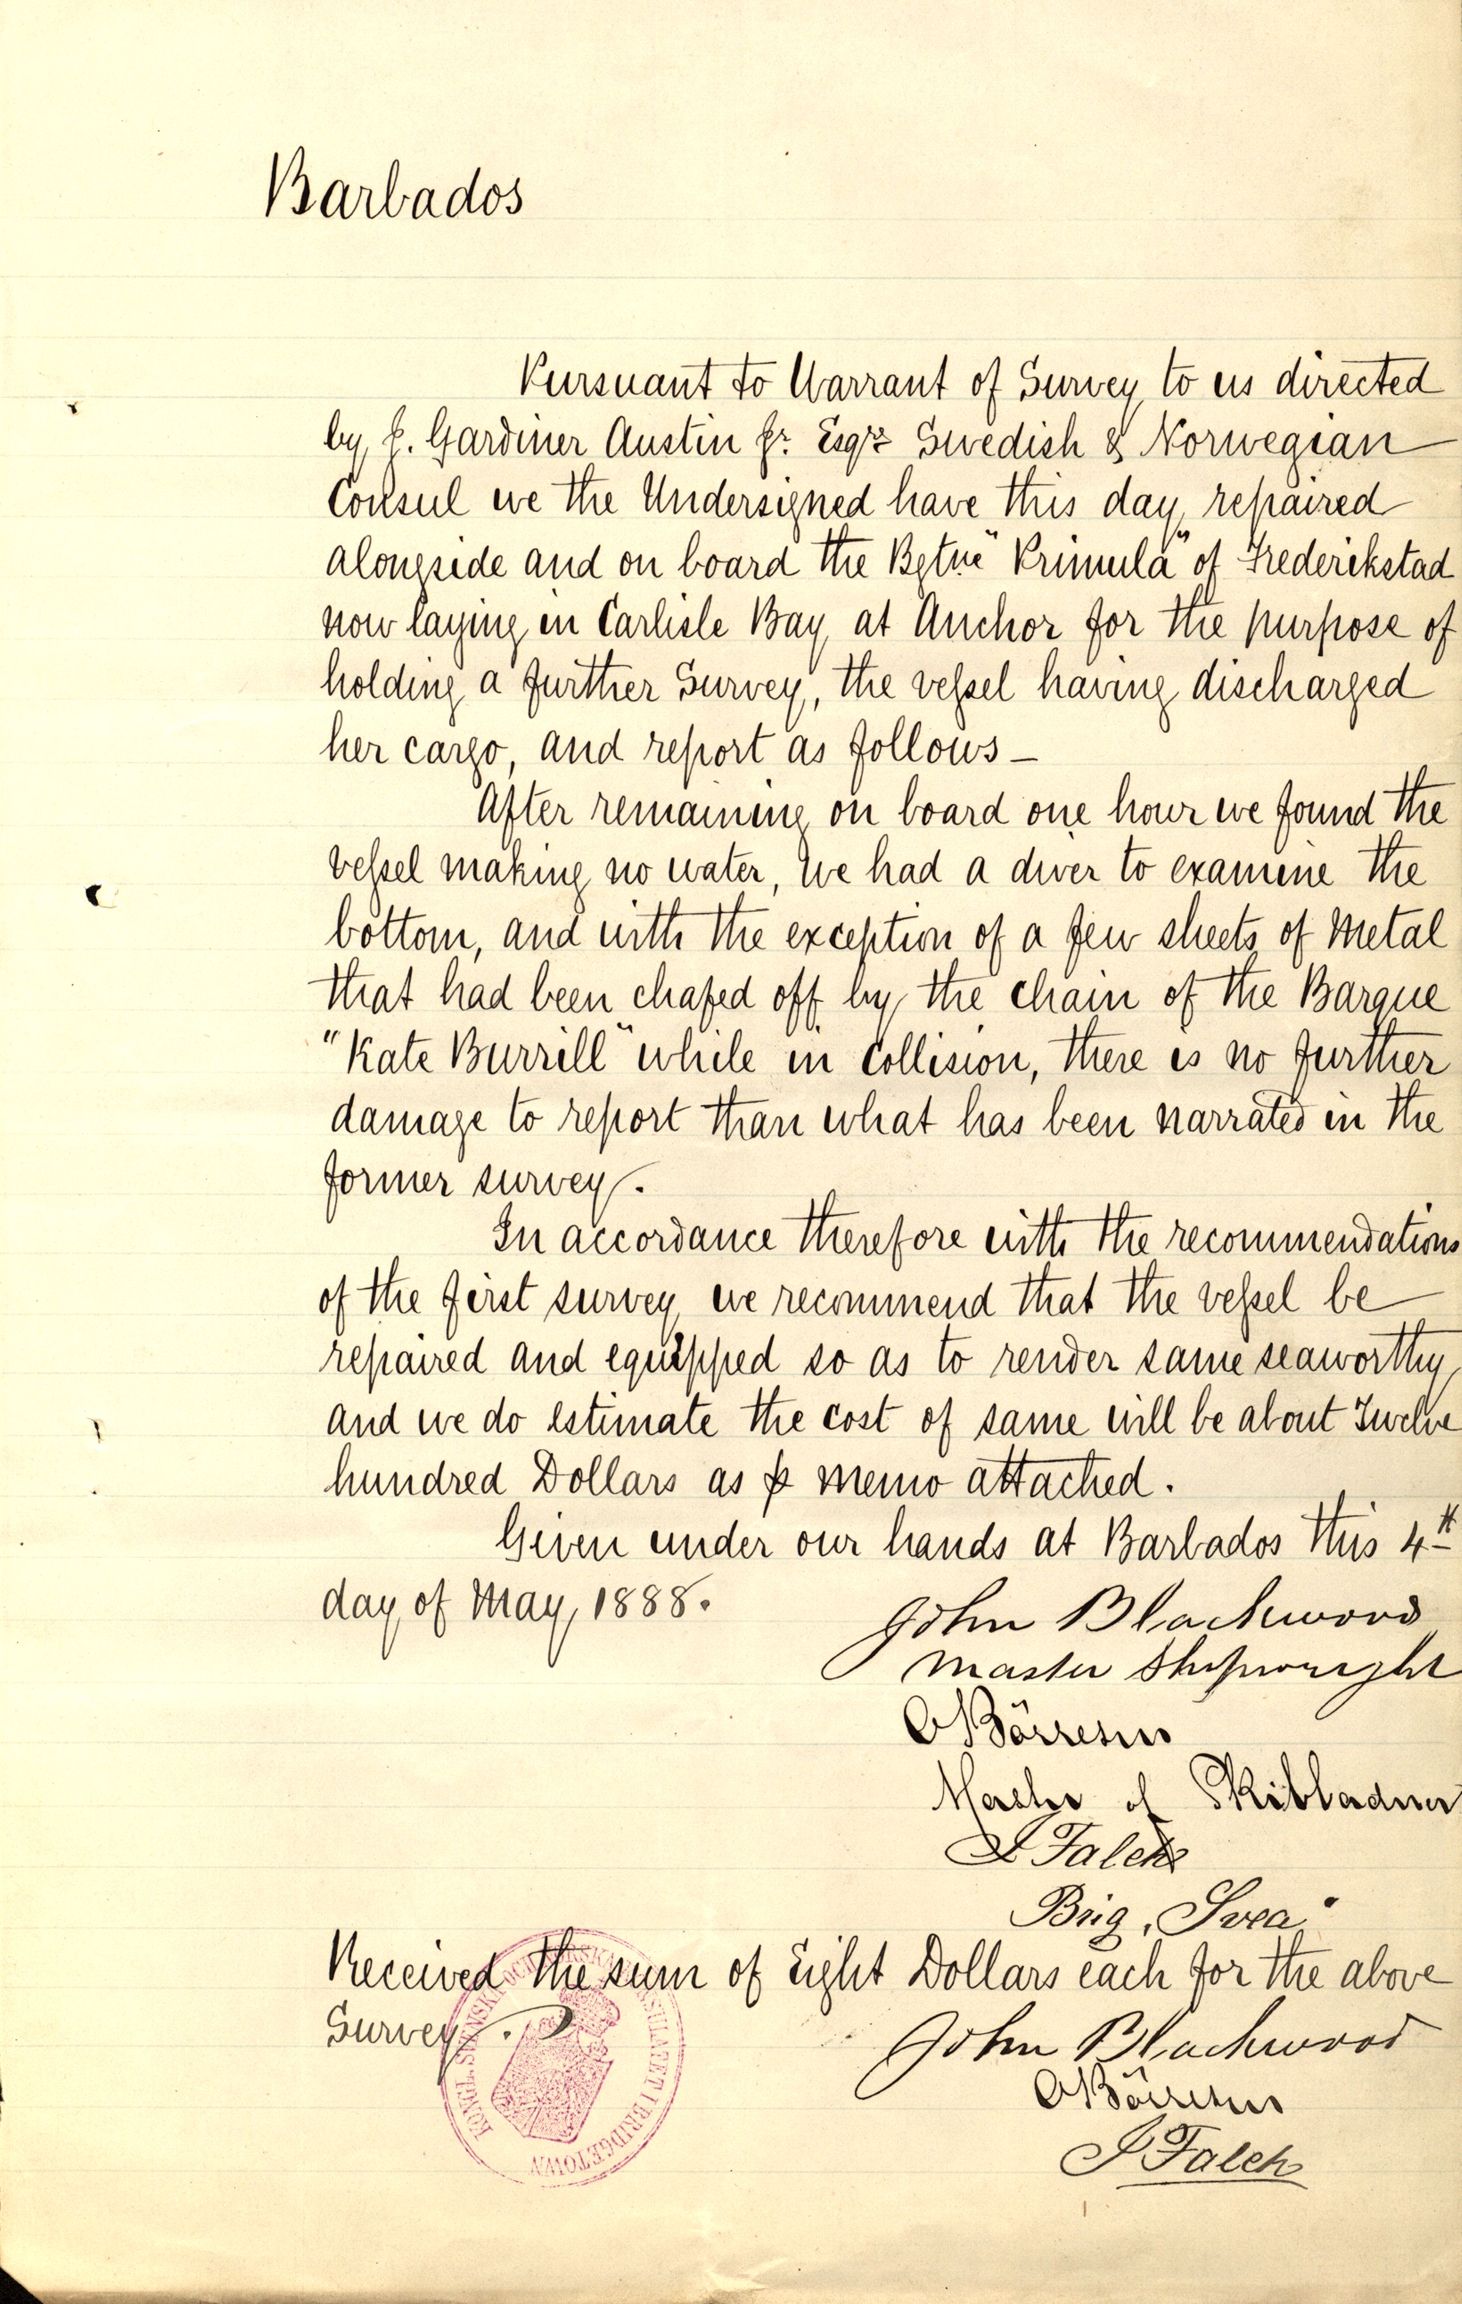 Barbados
Pursuant to Warrant of Survey to us directed
by J. Gardiner Austin Jr. Esqre Swedish & Norwegian
Consul we the Undersigned have this day repaired
alongside and on board the Bgtne "Primula" of Frederikstad
now laying in Carlisle Bay at Anchor for the purpose of
holding a further Survey, the vessel having discharged
her cargo, and report as follows –
After remaining on board one hour we found the
vessel making no water, We had a diver to examine the
bottom, and with the exception of a few sheets of Metal
that had been chafed off by the chain of the Barque
"Kate Burrill" while in Collision, there is no further
damage to report than what has been narrated in the
former survey.
In accordance therefore with the recommendations
of the first survey we recommend that the vessel be
repaired and equipped so as to render same seaworthy
and we do estimate the cost of same will be about Twelve
hundred Dollars as ⅌ memo attached.
Given under our hands at Barbados this 4th
day of May, 1888.
John Blackwood
Master Shipwright
O Börresen
Master of Skibladner
J Falck
Brig „Svea"
Received the sum of Eight Dollars each for the above
Survey.
KONGL. SVENSKA OCH NORSKA I BRIDGETOWN
John Blackwood
O Börresen
J Falck